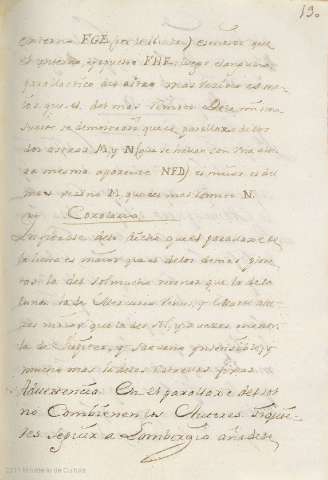 19.
externo FGE (por la                ) es mayor que
el interno, y opuesto FHE: luego el angulo
paralactico del astro mas vecino es ma-
ior que el del mas remoto. De la misma
suerte se demostrará que el paralaxe de los
dos astros M, y N (que se miran con una altu-
ra misma aparente NFD) es maior el del
mas vecino M, que del mas remoto N.
Corolario
Infierese de lo dicho que el paralaxe de
la luna es maior que el de los demas plane-
tas: la del sol mucho menor que la de la
luna: la de Mercurio Venus, y Marte a ve-
zes maior que la del sol, y a vezes menor:
la de Jupiter, y Saturno insensible; y
mucho mas la de las estrellas fixas.
Advertencia. En el paralaxe del sol
no Combienen los Autores. Siguie
les seguir a Lansbergio añadese
2011 Ministerio de Cultura